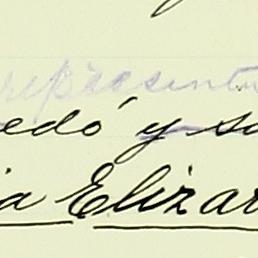 represent
edó y s
ia Elizar